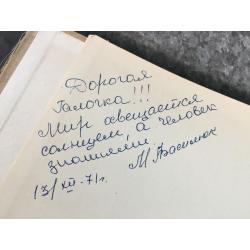 Дорогая
Галочка!!!
Мир освещается
солнцем, а человек
знаниями.
М. Василюк
13/XII-71г.